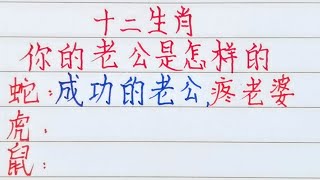 十二生肖
你的老公是怎样的
蛇:成功的老公,疼老婆
虎:
鼠: